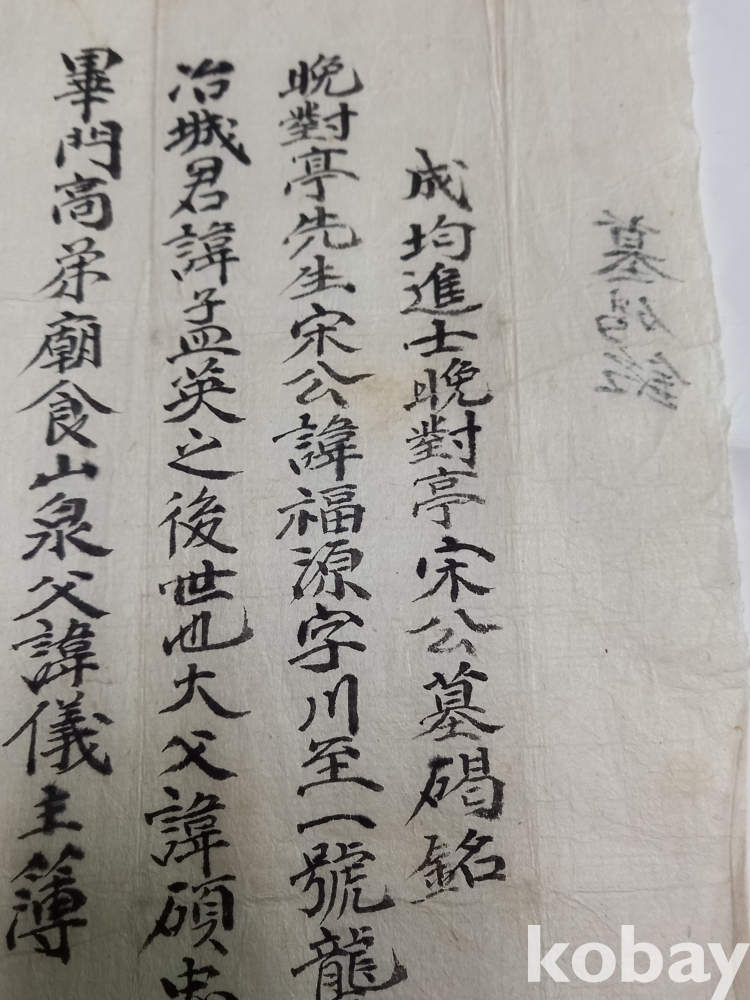 墓碣銘
成均進士晩對亭宋公墓碣銘
晩對亭先生宋公諱福源字川至一號龍
冶城君諱孟英之後世也大父諱碩忠
畢門高弟廟食山泉父諱儀主簿
kobay